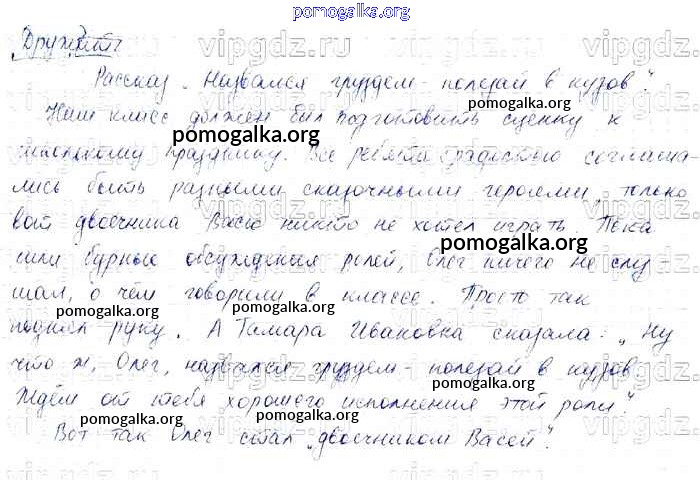 pomogalka.org
Дружить
Рассказ „Назвался груздем - полезай в кузов".
pomogalka.org
Наш класс должен был подготовить сценку к
pomogalka.org
школьному празднику. Все ребята с радостью соглаша-
лись быть разными сказочными героями, только
вот двоечника Васю никто не хотел играть. Пока
pomogalka.org
шли бурные обсуждения ролей, Олег ничего не слу-
шал, о чём говорили в классе. Просто так
pomogalka.org
поднял руку. А Тамара Ивановна сказала: „Ну
что ж, Олег, назвался груздем - полезай в кузов.
pomogalka.org
Ждём от тебя хорошего исполнения этой роли".
pomogalka.org pomogalka.org
Вот так Олег стал „двоечником Васей".